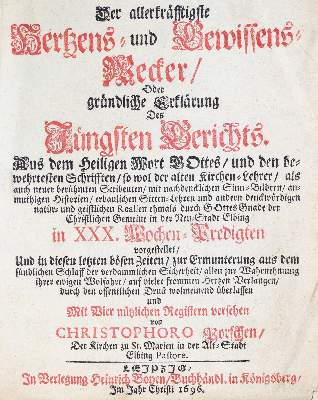 Der allerkräfftigste
Hertzens- und Gewissens-
Wecker/
Oder
gründliche Erklärung
Des
Jüngsten Gerichts.
Aus dem Heiligen Wort GOttes/ und den be-
wehrtesten Schrifften/ so wol der alten Kirchen-Lehrer/ als
auch neuer berühmten Scribenten/ mit nachdencklichen Sinn-Bildern/ an-
muthigen Historien/ erbaulichen Sitten-Lehren und andern denckwürdigen
natür- und geistlichen Realien ehmals durch GOttes Gnade der
Christlichen Gemeine in der Neu-Stadt Elbing
in XXX. Wochen-Predigten
vorgestellet/
Und in diesen letzten bösen Zeiten/ zur Ermunterung aus dem
sündlichen Schlaff der verdammlichen Sicherheit/ allen zur Wahrnehmung
ihrer ewigen Wolfahrt/ auf vieler frommen Hertzen Verlangen/
durch den offentlichen Druck wolmeinend überlassen
und
Mit Vier nützlichen Registern versehen
von
CHRISTOPHORO Porschen/
Der Kirchen zu St. Marien in der Alt-Stadt
Elbing Pastore.
LEIPZIG/
In Verlegung Heinrich Boyen/ Buchhändl. in Königsberg/
Im Jahr Christi 1696.